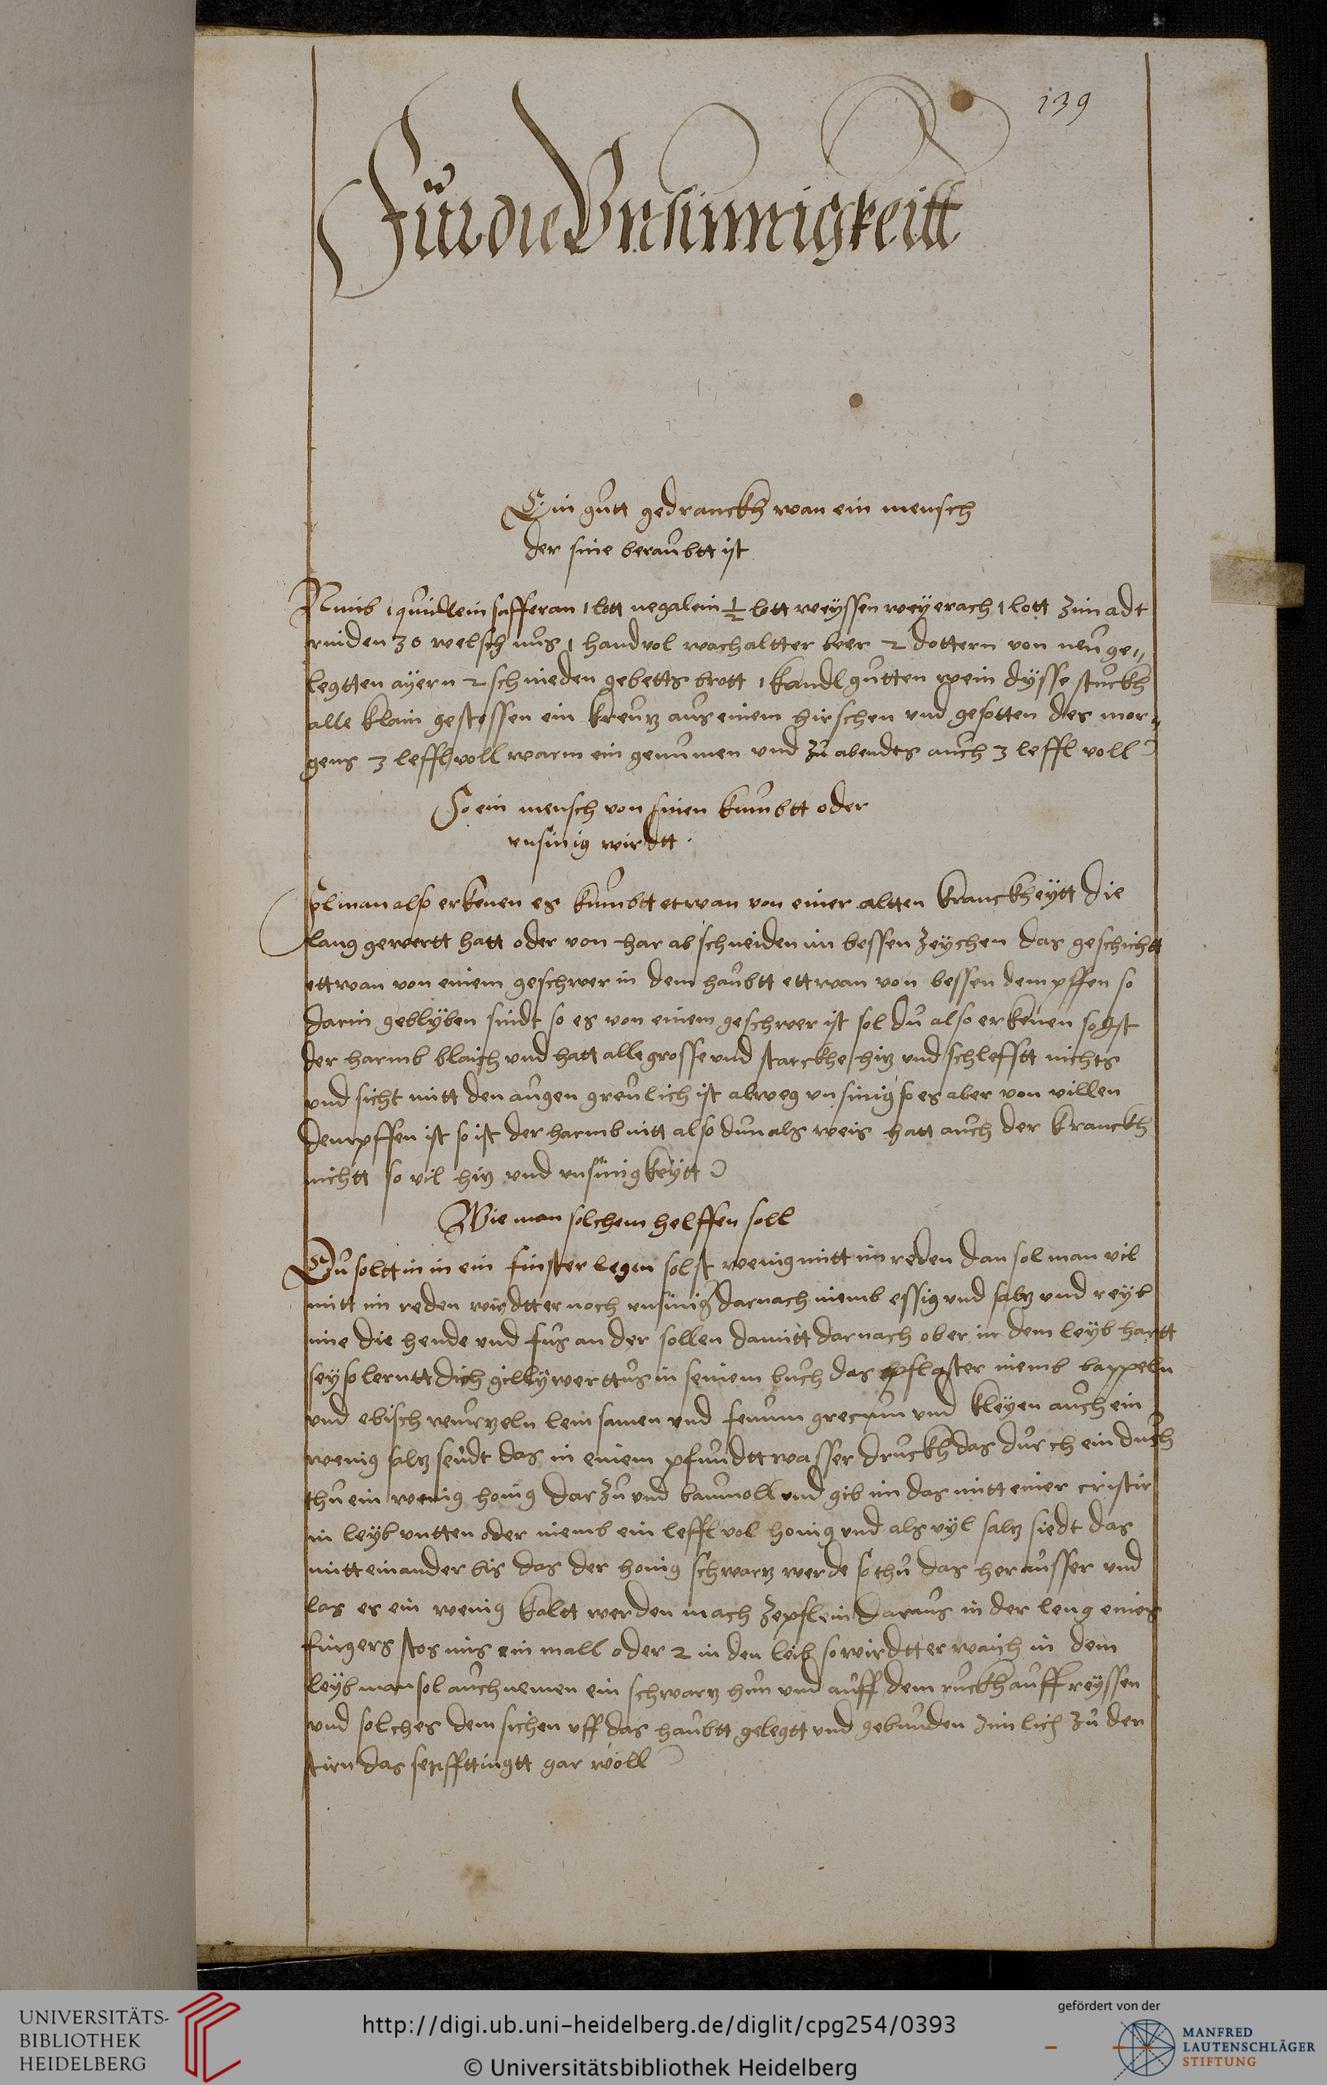 139
Für die Unsinnigkeitt
Ein gutt gedranckh wan ein mensch
der sine beraubtt ist
Nimb 1 quindlein safferan 1 lott negalein ½ lott weyssen weyerach 1 lott zimadt
rinden 30 welsch nus 1 handvol wachaltter beer 2 dottern von neu ge„
legtten ayern 2 schnieden gebetts brott 1 kandl gutten wein dysse stuckh
alle klain gestossen ein kreutz aus einem hirschen und gesotten des mor„
gens 3 leffl voll warm ein genumen und zu abendts auch 3 leffl voll
So ein mensch von sinen kumbtt oder
unsinig wirdtt
Sol man also erkenen es kumbtt etwan von einer altten kranckheytt die
lang gewertt hatt oder von har abschneiden im bessen zeychen das geschichtt
ettwan von einem geschwer in dem haubtt ettwan von bessen dempffen so
darin geblyben sindt so es von einem geschwer ist sol du also erkenen so ist
der harmb blaich und hatt alle grosse und starckhe hitz und schlefftt nichts
und sicht mitt den augen greulich ist alweg unsinig so es aber von villen
dempffen ist so ist der harmb nitt also dun als weis hatt auch der kranckh
nichtt so vil hitz und unsinigkeytt
Wie man solchem helffen soll
Du soltt in in ein finster legen solst wenig mitt im reden dan sol man vil
mitt im reden wirdtt er noch unsinig darnach niemb essig und saltz und reyb
ime die hende und fus an der sollen damitt darnach ober im dem leyb hartt
sey so lerntt dich gilbywerttus in seinem buch das pflaster niemb bappeln
und ebisch wurtzeln leinsamen und fenum grecum und kleyen auch ein
wenig saltz seudt das in einem pfundtt wasser druckh das durch ein duch
thu ein wenig honig darzu und baumoll und gib im das mitt einer cristir
in leyb untten oder niemb ein leffl vol honig und als vyl saltz siedt das
mitt einander bis das der honig schwartz werde so thu das herausser und
las es ein wenig kaltt werden mach zepflein daraus in der leng eines
fingers stos ims ein mall oder 2 in den leib so wirdtt er waich in dem
leyb man sol auch nemen ein schwartz hun und auff dem ruckh auff reyssen
und solches dem sichen uff das haubtt gelegtt und gebunden zimlich zu der
stirn das senffttingtt gar woll
UNIVERSITÄTS-
BIBLIOTHEK
HEIDELBERG
http://digi.ub.uni-heidelberg.de/diglit/cpg254/0393
© Universitätsbibliothek Heidelberg
gefördert von der
MANFRED
LAUTENSCHLÄGER
STIFTUNG